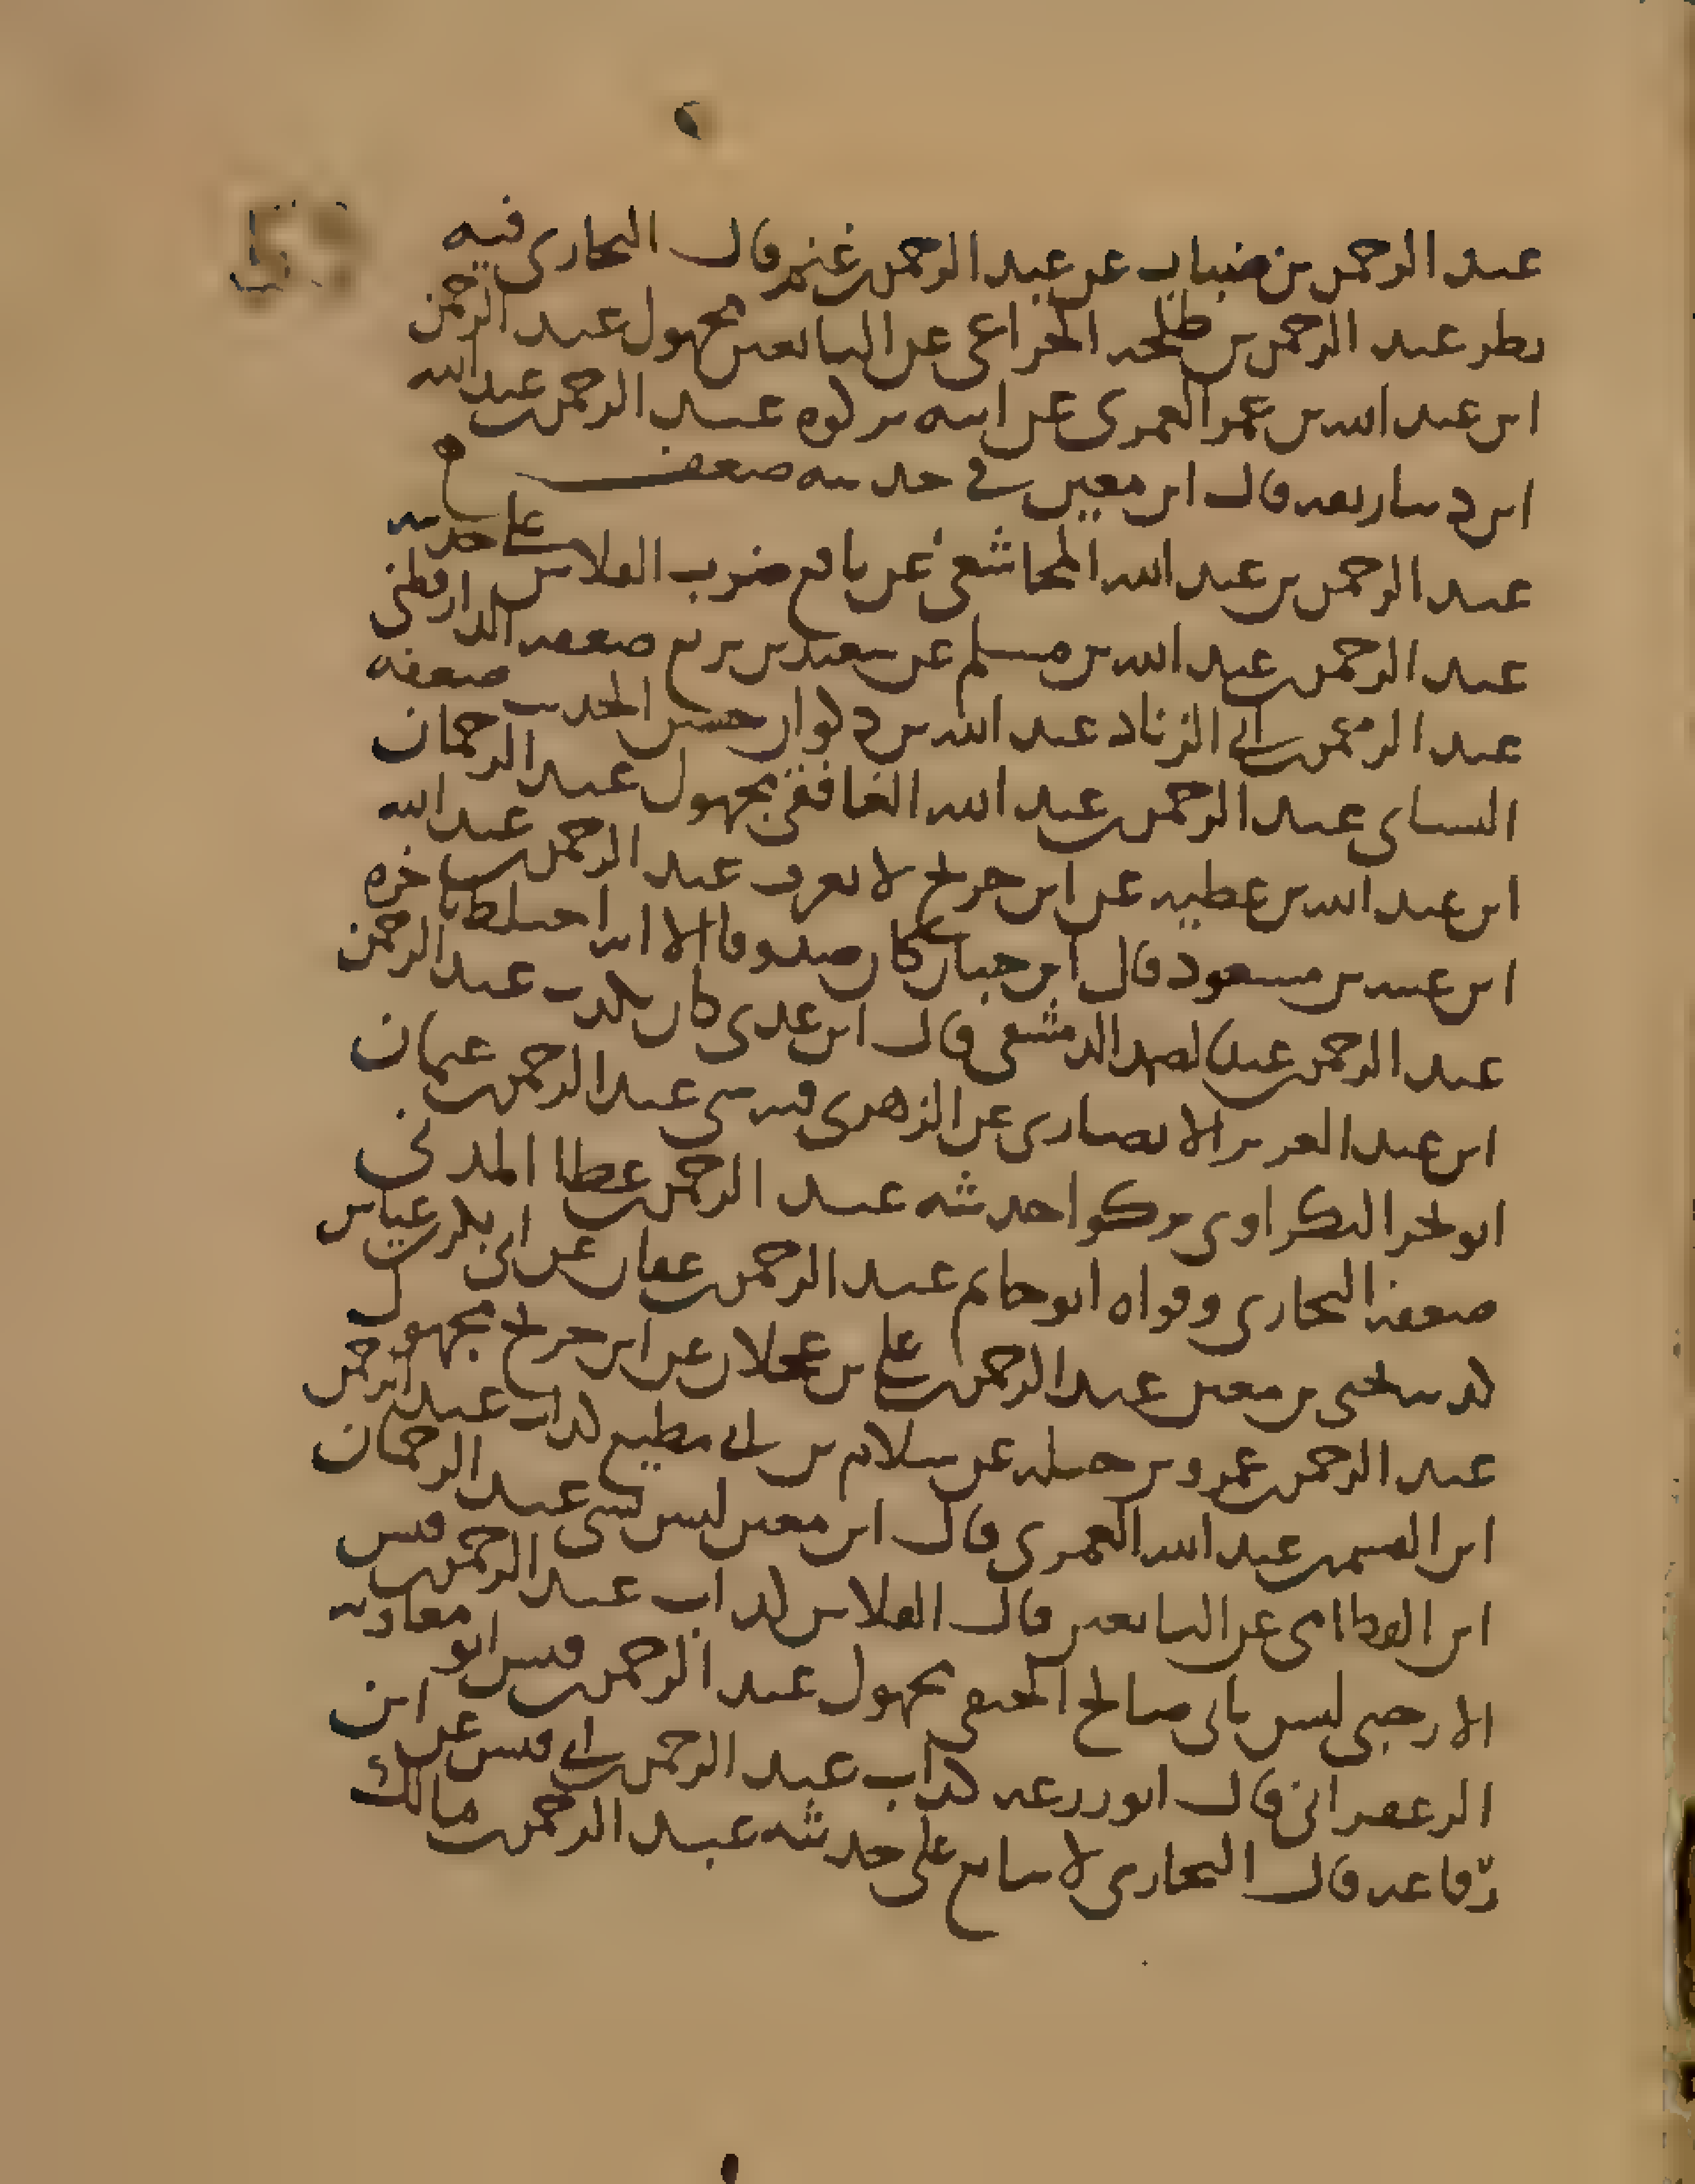 عبد الرحمن بن ضباب عن عبد الرحمن بن غنم قال البخاري فيه
نظر عبد الرحمن بن طلحه الخزاعي عن التابعين مجهول عبد الرحمن
ابن عبد الله بن عمر العمري عن ابيه تركوه عبد الرحمن بن عبد الله
ابن دينار ثقه قال ابن معين في حديثه ضعف
عبد الرحمن بن عبد الله المجاشعي عن نافع ضرب الفلاس على حديثه
عبد الرحمن بن عبد الله بن مسلم عن سعيد بن بزيع ضعفه الدارقطني
عبد الرحمن بن ابي الزناد عبد الله بن ذكوان حسن الحديث ضعفه
النساي عبد الرحمن بن عبد الله الغافقي مجهول عبد الرحمان
ابن عبد الله بن عطيه عن ابن جريج لا يعرف عبد الرحمن بن عبد الله
ابن عتبه بن مسعود قال ابن حبان كان صدوقا الا انه اختلط باخره
عبد الرحمن بن عبد الصمد الدمشقي قال ابن عدي كان يكذب عبد الرحمن
ابن عبد العزيز الانصاري عن الزهري فيه شي عبد الرحمن بن عثمان
ابو بحر البكراوي تركوا حديثه عبد الرحمن بن عطا المدني
ضعفه البخاري وقواه ابو حاتم عبد الرحمن بن عفان عن ابي بكر بن عياش
كذبه يحيى بن معين عبد الرحمن بن علي بن عجلان عن ابن جريج مجهول
عبد الرحمن بن عمرو بن جبله عن سلام بن ابي مطيع كذاب عبد الرحمن
ابن القسم بن عبد الله العمري قال ابن معين ليس بشي عبد الرحمان
ابن القطامي عن التابعين قال الفلاس كذاب عبد الرحمن بن قيس
الارحبي ليس بابي صالح الحنفي مجهول عبد الرحمن بن قيس ابو معاويه
الزعفراني قال ابو زرعه كذاب عبد الرحمن بن ابي قيس عن ابن
رفاعه قال البخاري لا يتابع على حديثه عبد الرحمن بن مالك